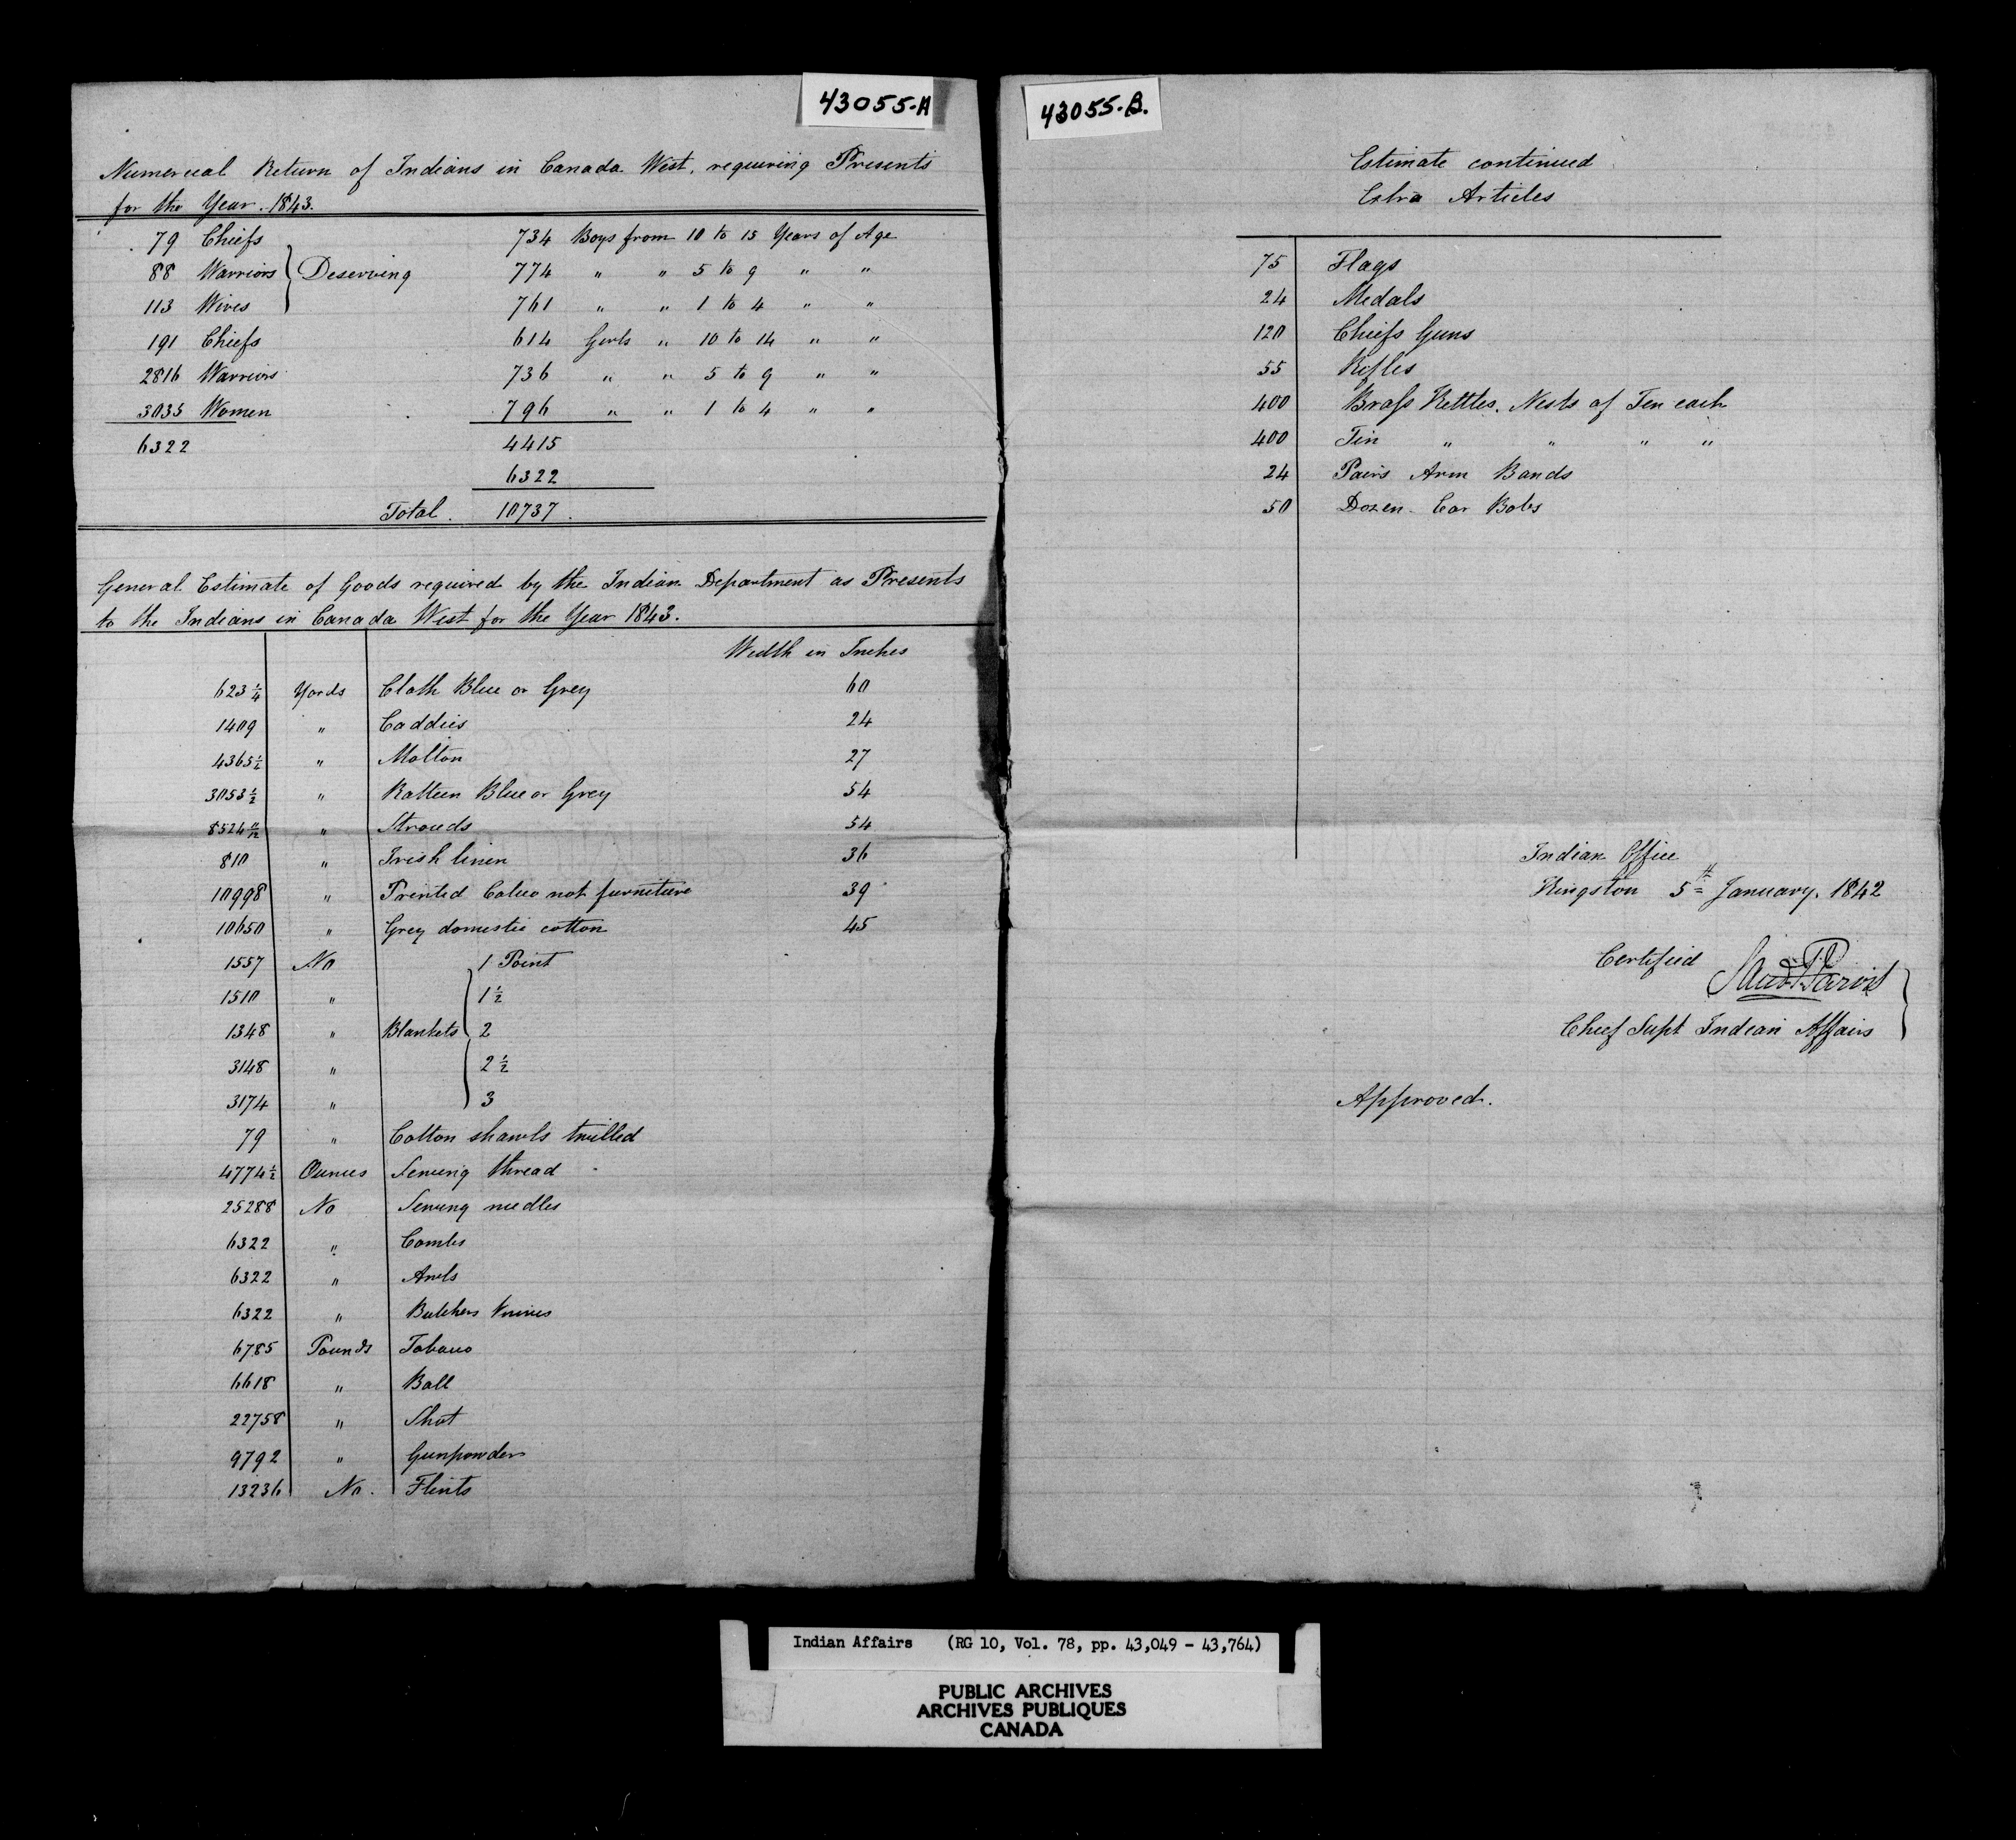 43055-A
Numerical Return of Indians in Canada West, requiring Presents
for the Year. 1843.
79 Chiefs
88 Warriors } Deserving
113 Wives
191 Chiefs
2816 Warriors
3035 Women
6322
734 Boys from 10 to 15 Years of Age
774 " " 5 to 9 " "
761 " " 1 to 4 " "
614 Girls " 10 to 14 " "
736 " " 5 to 9 " "
796 " " 1 to 4 " "
4415
6322
Total. 10737.
General Estimate of Goods required by the Indian Department as Presents
to the Indians in Canada West for the Year 1843.
Width in Inches
623 1/4 Yards Cloth Blue or Grey 60
1409 " Caddies 24
4365 1/2 " Molton 27
3053 1/2 " Ratteen Blue or Grey 54
8524 11/12 " Strouds 54
810 " Irish linen 36
10998 " Printed Calico not furniture 39
10650 " Grey domestic cotton 45
1557 No 1 Point
1510 " 1 1/2
1348 " Blankets 2
3148 " 2 1/2
3174 " 3
79 " Cotton shawls twilled
4774 1/2 Ounces Sewing thread
25288 No Sewing needles
6322 " Combs
6322 " Awls
6322 " Butchers Knives
6785 Pounds Tobacco
6618 " Ball
22758 " Shot
9792 " Gunpowder
13236 No. Flints
43055-B.
Estimate continued
Extra Articles
75 Flags
24 Medals
120 Chiefs Guns
55 Rifles
400 Brass Kettles. Nests of Ten each
400 Tin " " " "
24 Pairs Arm Bands
50 Dozen Ear Bobs
Indian Office
Kingston 5th January. 1842
Certified Saml P Jarvis
Chief Supt Indian Affairs
Approved.
Indian Affairs (RG 10, Vol. 78, pp. 43,049 - 43,764)
PUBLIC ARCHIVES
ARCHIVES PUBLIQUES
CANADA